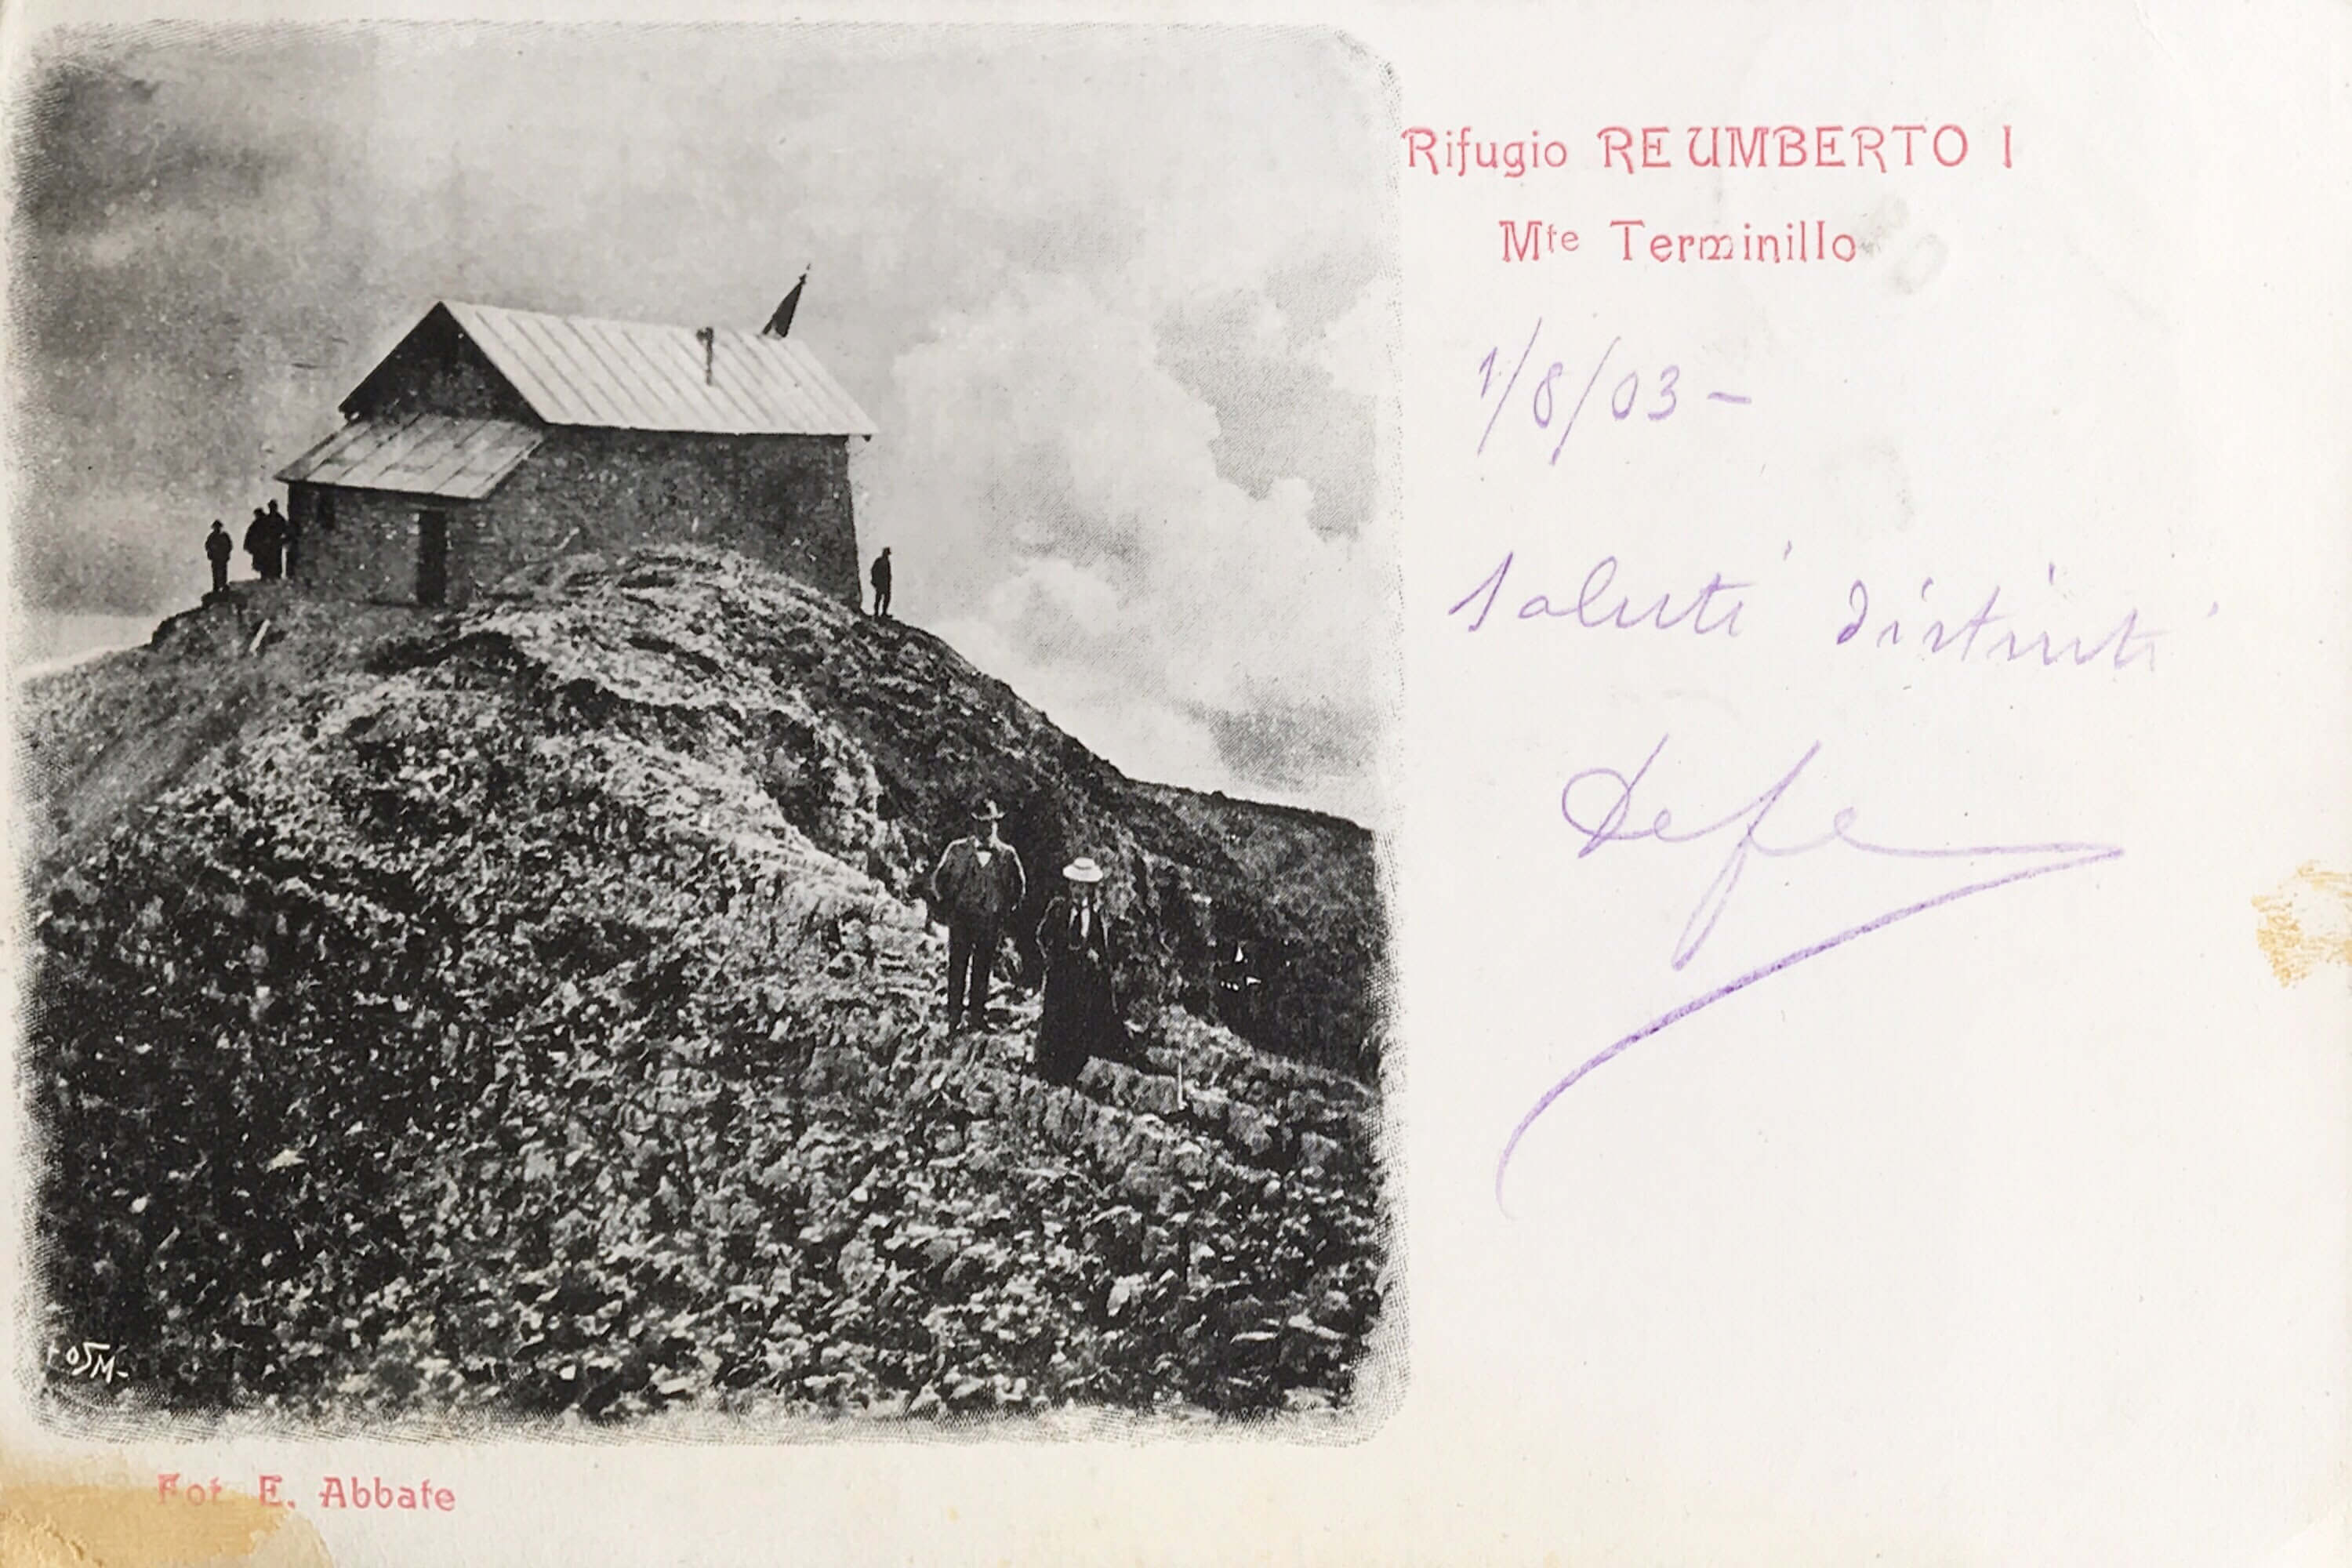 Rifugio RE UMBERTO I
Mte Terminillo
1/8/03 -
Saluti distinti
Defe
OSM-
Fot. E. Abbate